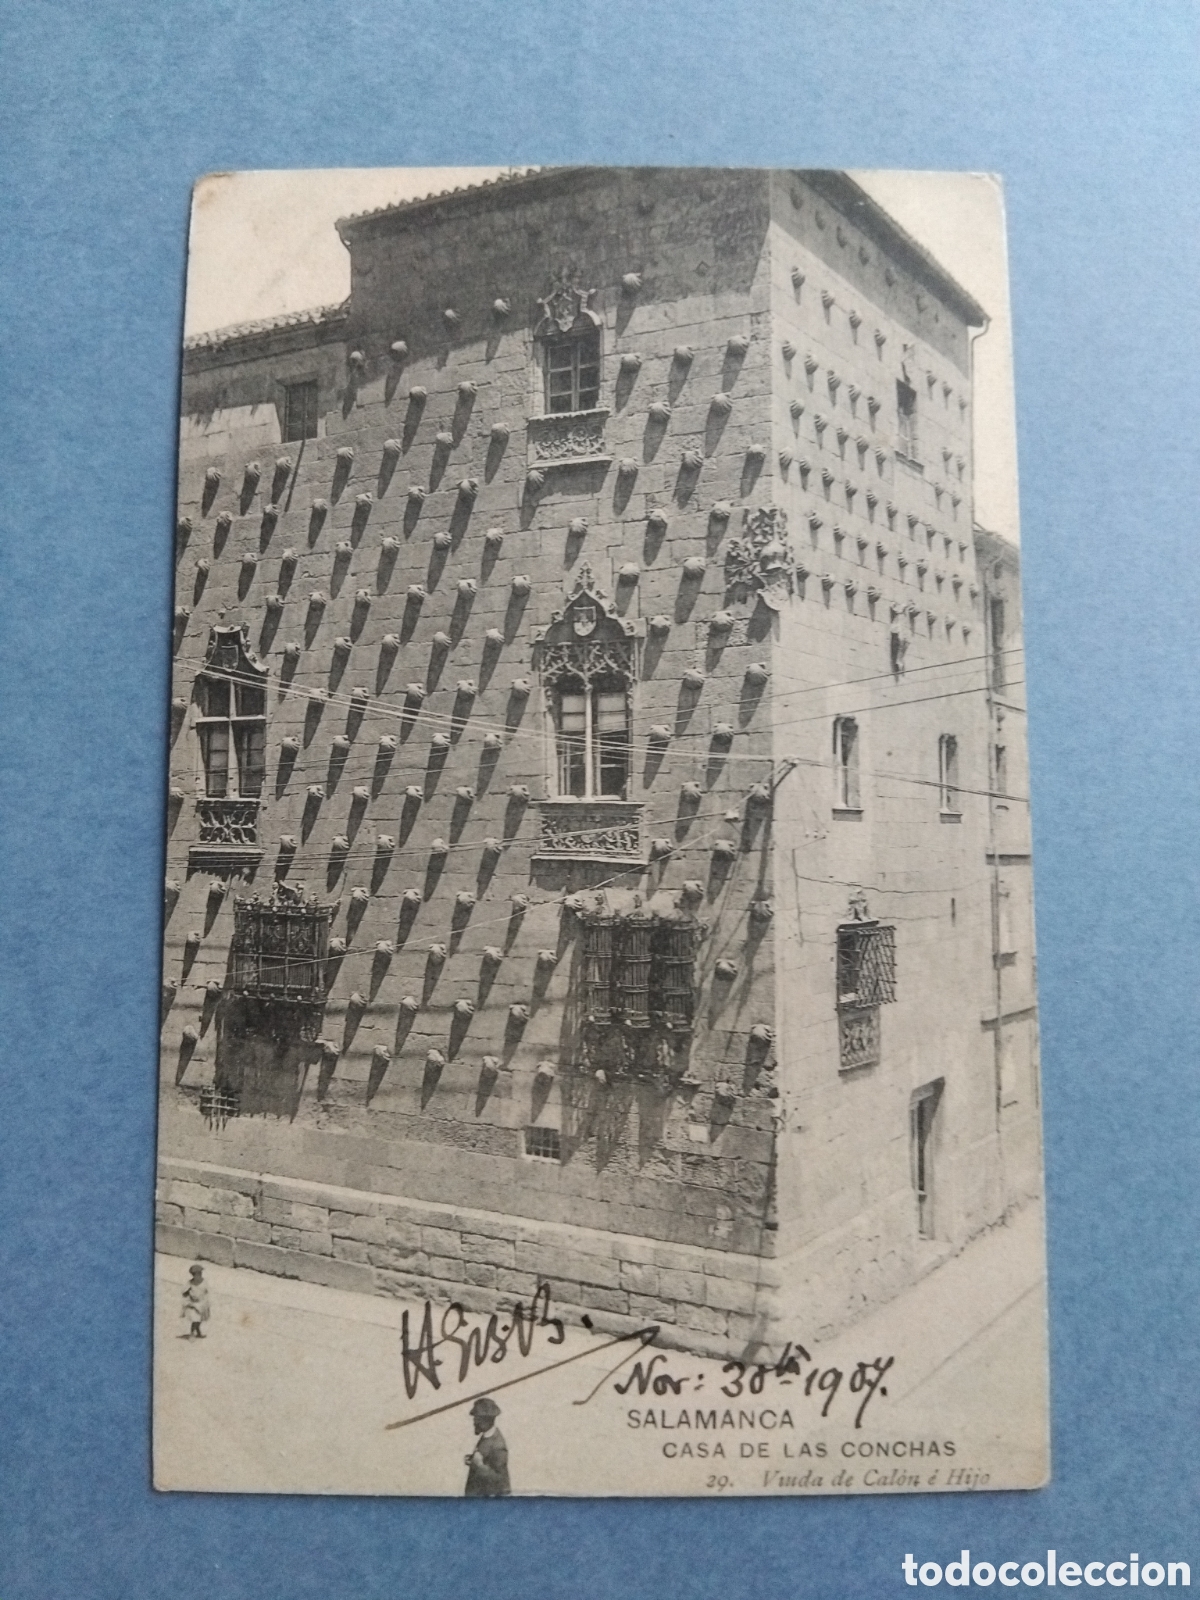 Nov: 30th 1907.
SALAMANCA
CASA DE LAS CONCHAS
29. Viuda de Calón é Hijo
todocoleccion